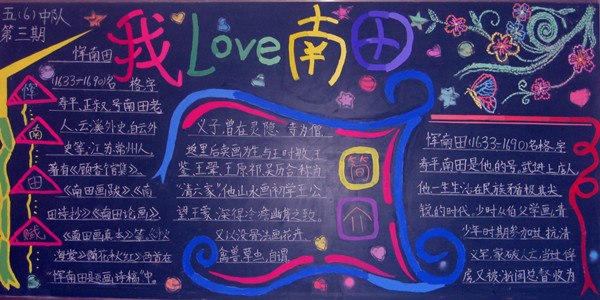 五(6)中队
第三期
我Love南田
恽南田
(1633-1690)名 格,字
寿平,正叔,号南田老
人、云溪外史,白云外
史等,江苏常州人。
著有《瓯香馆集》
《南田画跋》《南
田诗抄》《南田论画》、
《南田画真本》等。
海棠》《菊花秋红》两首在
恽
南
田
赋
义子,曾在灵隐 寺为僧,
返里后卖画为生,与王时敏、王
鉴、王翚、王原祁、吴历合称为
"清六家"他山水画初学王
望王蒙,深得冷淡幽隽之致,
又以没骨法画花卉、
禽兽草虫,自谓
简
介
恽南田(1633-1690)名格,字
寿平,南田是他的号,武进上店人
他一生生活在民族矛盾极其尖
锐的时代,少时从伯父学画,青
少年时期参加过抗清
义军,家破人亡,当过俘
虏又被浙闽总督收为